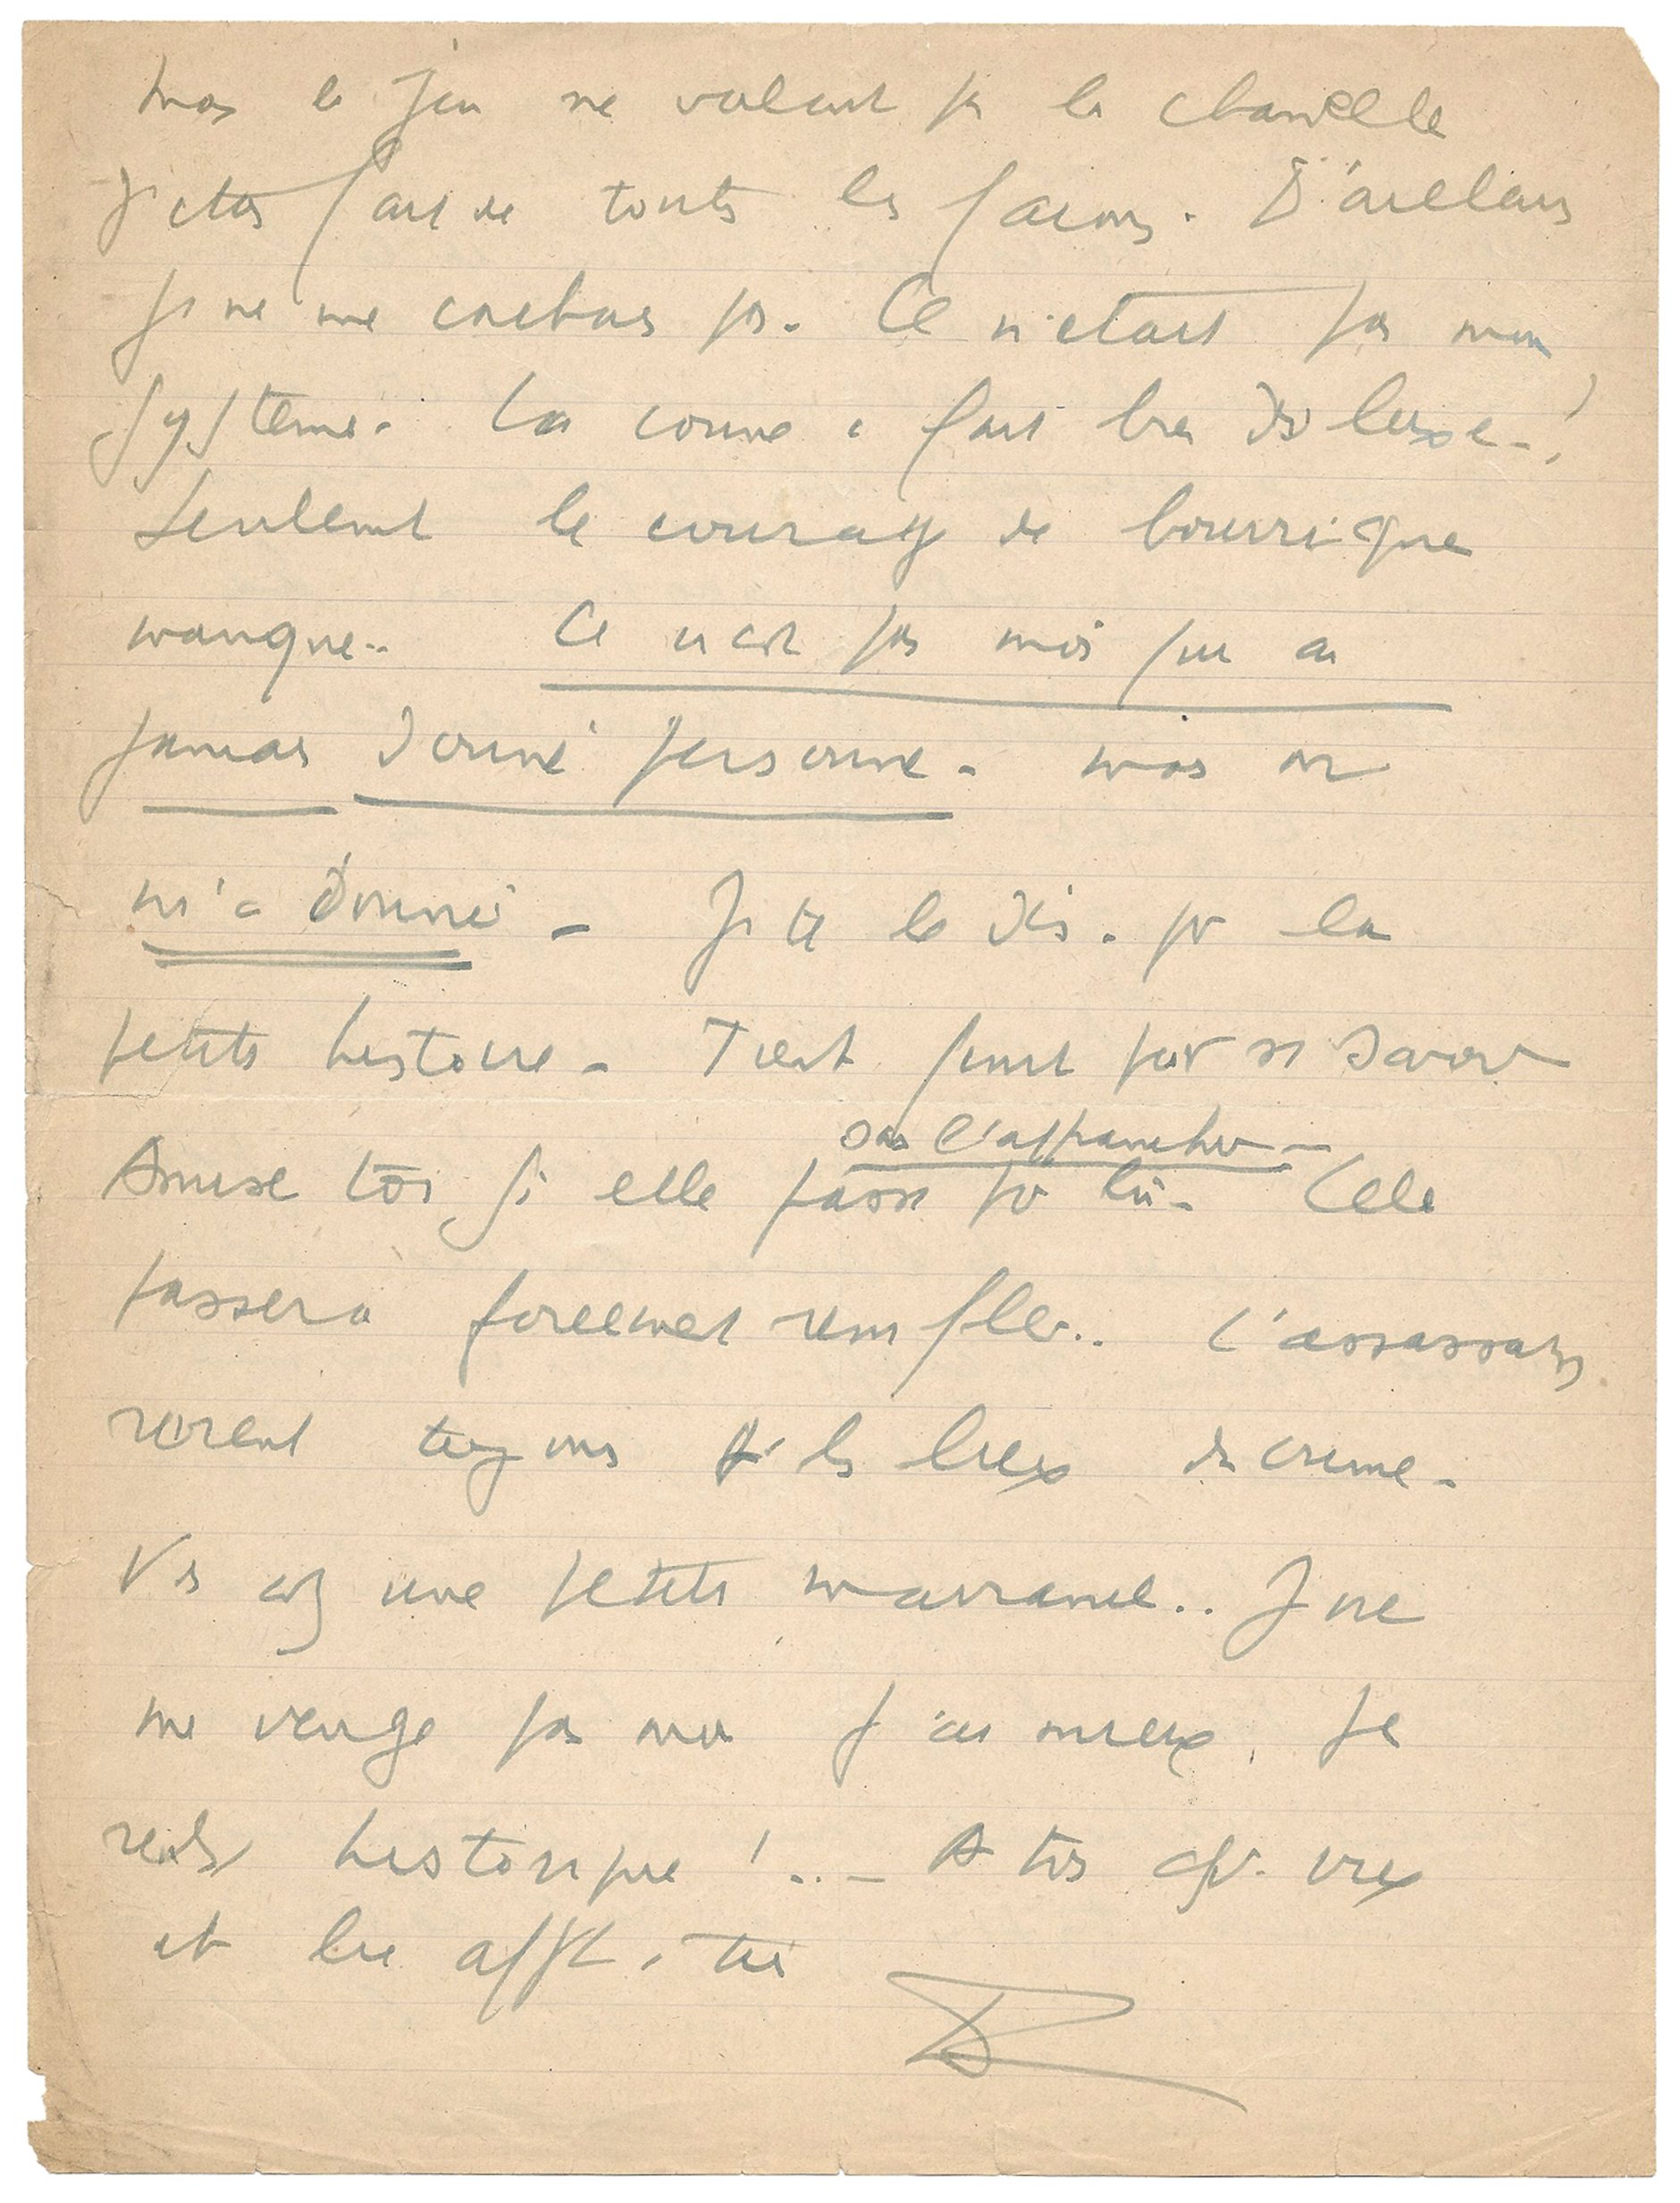 mais le jeu ne valait pas la chandelle
J'étais fait de toutes les façons. D'ailleurs
je ne me cachais pas. Ce n'était pas mon
système. La conne a fait bien de luxe !
Seulement le courage de bourrique
manque.. Ce n'est pas moi qui ai
jamais donné personne. mais on
m'a donné – Je te le dis. pr la
petite histoire – Tient peint par se savoir
sans l'affranchir –
Amuse toi si elle passe pr là – Cela
passera forcément renifler.. L'assassin
revient toujours sr les lieux du crime –
Vs avez une petite marrante.. Je ne
me venge pas moi j'ai mieux, je
rends historique !.. – A toi cher vieux
et bien affect. toi